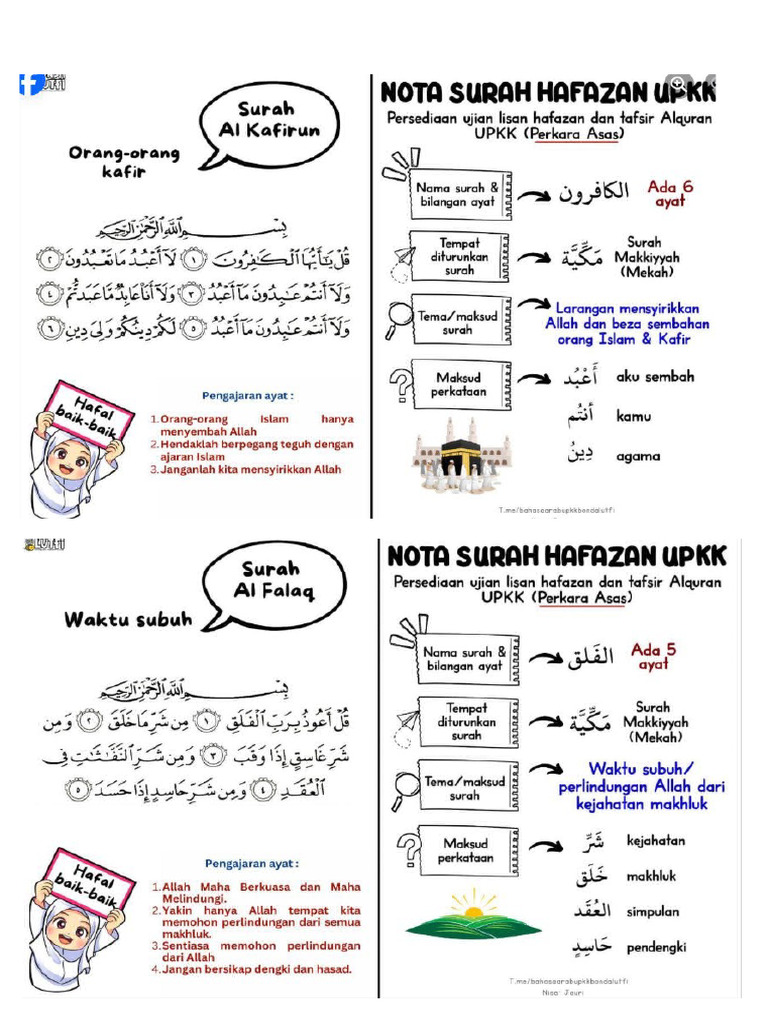 Surah
Al Kafirun
Orang-orang
kafir
بِسْمِ اللَّهِ الرَّحْمَٰنِ الرَّحِيمِ
قُلْ يَٰٓأَيُّهَا ٱلْكَٰفِرُونَ ١ لَآ أَعْبُدُ مَا تَعْبُدُونَ ٢
وَلَآ أَنتُمْ عَٰبِدُونَ مَآ أَعْبُدُ ٣ وَلَآ أَنَا۠ عَابِدٌ مَّا عَبَدتُّمْ ٤
وَلَآ أَنتُمْ عَٰبِدُونَ مَآ أَعْبُدُ ٥ لَكُمْ دِينُكُمْ وَلِىَ دِينِ ٦
Hafal
baik-baik
Pengajaran ayat :
1. Orang-orang Islam hanya
menyembah Allah
2. Hendaklah berpegang teguh dengan
ajaran Islam
3. Janganlah kita mensyirikkan Allah
NOTA SURAH HAFAZAN UPKK
Persediaan ujian lisan hafazan dan tafsir Alquran
UPKK (Perkara Asas)
Nama surah &
bilangan ayat
الكافرون
Ada 6
ayat
Tempat
diturunkan
surah
مَكِّيَّة
Surah
Makkiyyah
(Mekah)
Tema/maksud
surah
Larangan mensyirikkan
Allah dan beza sembahan
orang Islam & Kafir
Maksud
perkataan
أَعْبُد aku sembah
أَنتُم kamu
دِينُ agama
T.me/bahasaarabupkkbondalutfi
LUTFI
Surah
Al Falaq
Waktu subuh
بِسْمِ اللَّهِ الرَّحْمَٰنِ الرَّحِيمِ
قُلْ أَعُوذُ بِرَبِّ ٱلْفَلَقِ ١ مِن شَرِّ مَا خَلَقَ ٢ وَمِن
شَرِّ غَاسِقٍ إِذَا وَقَبَ ٣ وَمِن شَرِّ ٱلنَّفَّٰثَٰتِ فِى
ٱلْعُقَدِ ٤ وَمِن شَرِّ حَاسِدٍ إِذَا حَسَدَ ٥
Hafal
baik-baik
Pengajaran ayat :
1. Allah Maha Berkuasa dan Maha
Melindungi.
2. Yakin hanya Allah tempat kita
memohon perlindungan dari semua
makhluk.
3. Sentiasa memohon perlindungan
dari Allah
4. Jangan bersikap dengki dan hasad.
NOTA SURAH HAFAZAN UPKK
Persediaan ujian lisan hafazan dan tafsir Alquran
UPKK (Perkara Asas)
Nama surah &
bilangan ayat
الفَلَق
Ada 5
ayat
Tempat
diturunkan
surah
مَكِّيَّة
Surah
Makkiyyah
(Mekah)
Tema/maksud
surah
Waktu subuh/
perlindungan Allah dari
kejahatan makhluk
Maksud
perkataan
شَرِّ kejahatan
خَلَق makhluk
العُقَد simpulan
حَاسِدٍ pendengki
T.me/bahasaarabupkkbondalutfi